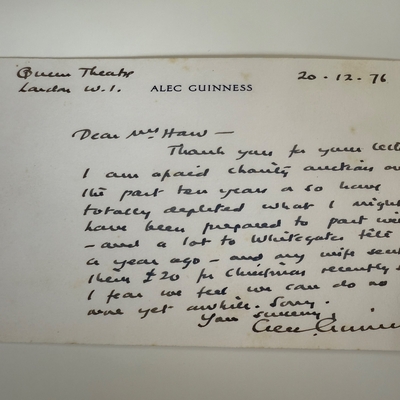 Queens Theatre 20 - 12 - 76
London W.1. ALEC GUINNESS
Dear Mrs Haw —
Thank you for your lett
I am afraid charity auctions ov
the past ten years or so have
totally depleted what I might
have been prepared to part wi
- and a lot to Whitegates
a year ago - and my wife sent
them £20 for Christmas recently s
I fear we feel we can do no
more yet awhile. Sorry.
Yours sincerely,
Alec Guinness